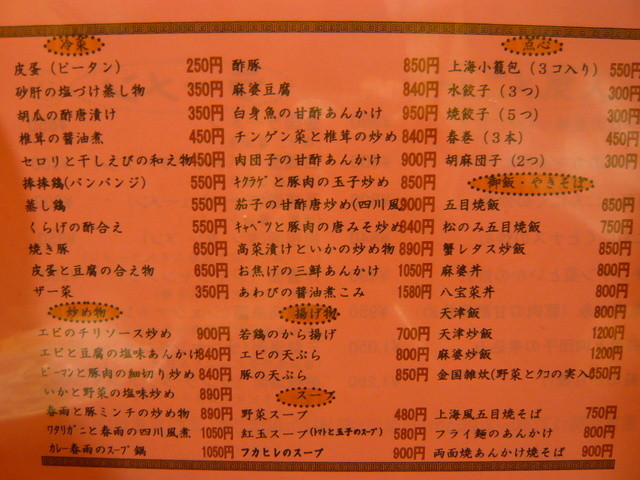 冷菜
皮蛋(ピータン) 250円
砂肝の塩づけ蒸し物 350円
胡瓜の酢唐漬け 350円
椎茸の醤油煮 450円
セロリと干しえびの和え物 450円
捧捧鶏(バンバンジ) 550円
蒸し鶏 550円
くらげの酢合え 550円
焼き豚 650円
皮蛋と豆腐の合え物 650円
ザー菜 350円
炒め物
エビのチリソース炒め 900円
エビと豆腐の塩味あんかけ 840円
ピーマンと豚肉の細切り炒め 840円
いかと野菜の塩味炒め 890円
春雨と豚ミンチの炒め物 890円
ワタリガニと春雨の四川風煮 1050円
カレー春雨のスープ鍋 1050円
酢豚 850円
麻婆豆腐 840円
白身魚の甘酢あんかけ 950円
チンゲン菜と椎茸の炒め 840円
肉団子の甘酢あんかけ 900円
キクラゲと豚肉の玉子炒め 850円
茄子の甘酢唐炒め(四川風) 900円
キャベツと豚肉の唐みそ炒め 840円
高菜漬けといかの炒め物 890円
お焦げの三鮮あんかけ 1050円
あわびの醤油煮こみ 1580円
揚げ物
若鶏のから揚げ 700円
エビの天ぷら 800円
豚の天ぷら 850円
スープ
野菜スープ 480円
紅玉スープ(トマトと玉子のスープ) 580円
フカヒレのスープ 900円
点心
上海小籠包(3コ入り) 550円
水餃子(3つ) 300円
焼餃子(5つ) 300円
春巻(3本) 450円
胡麻団子(2つ) 300円
御飯・やきそば
五目焼飯 650円
松のみ五目焼飯 750円
蟹レタス炒飯 850円
麻婆丼 800円
八宝菜丼 800円
天津飯 800円
天津炒飯 1200円
麻婆炒飯 1200円
金国雑炊(野菜とクコの実入) 650円
上海風五目焼そば 750円
フライ麺のあんかけ 800円
両面焼あんかけ焼そば 900円